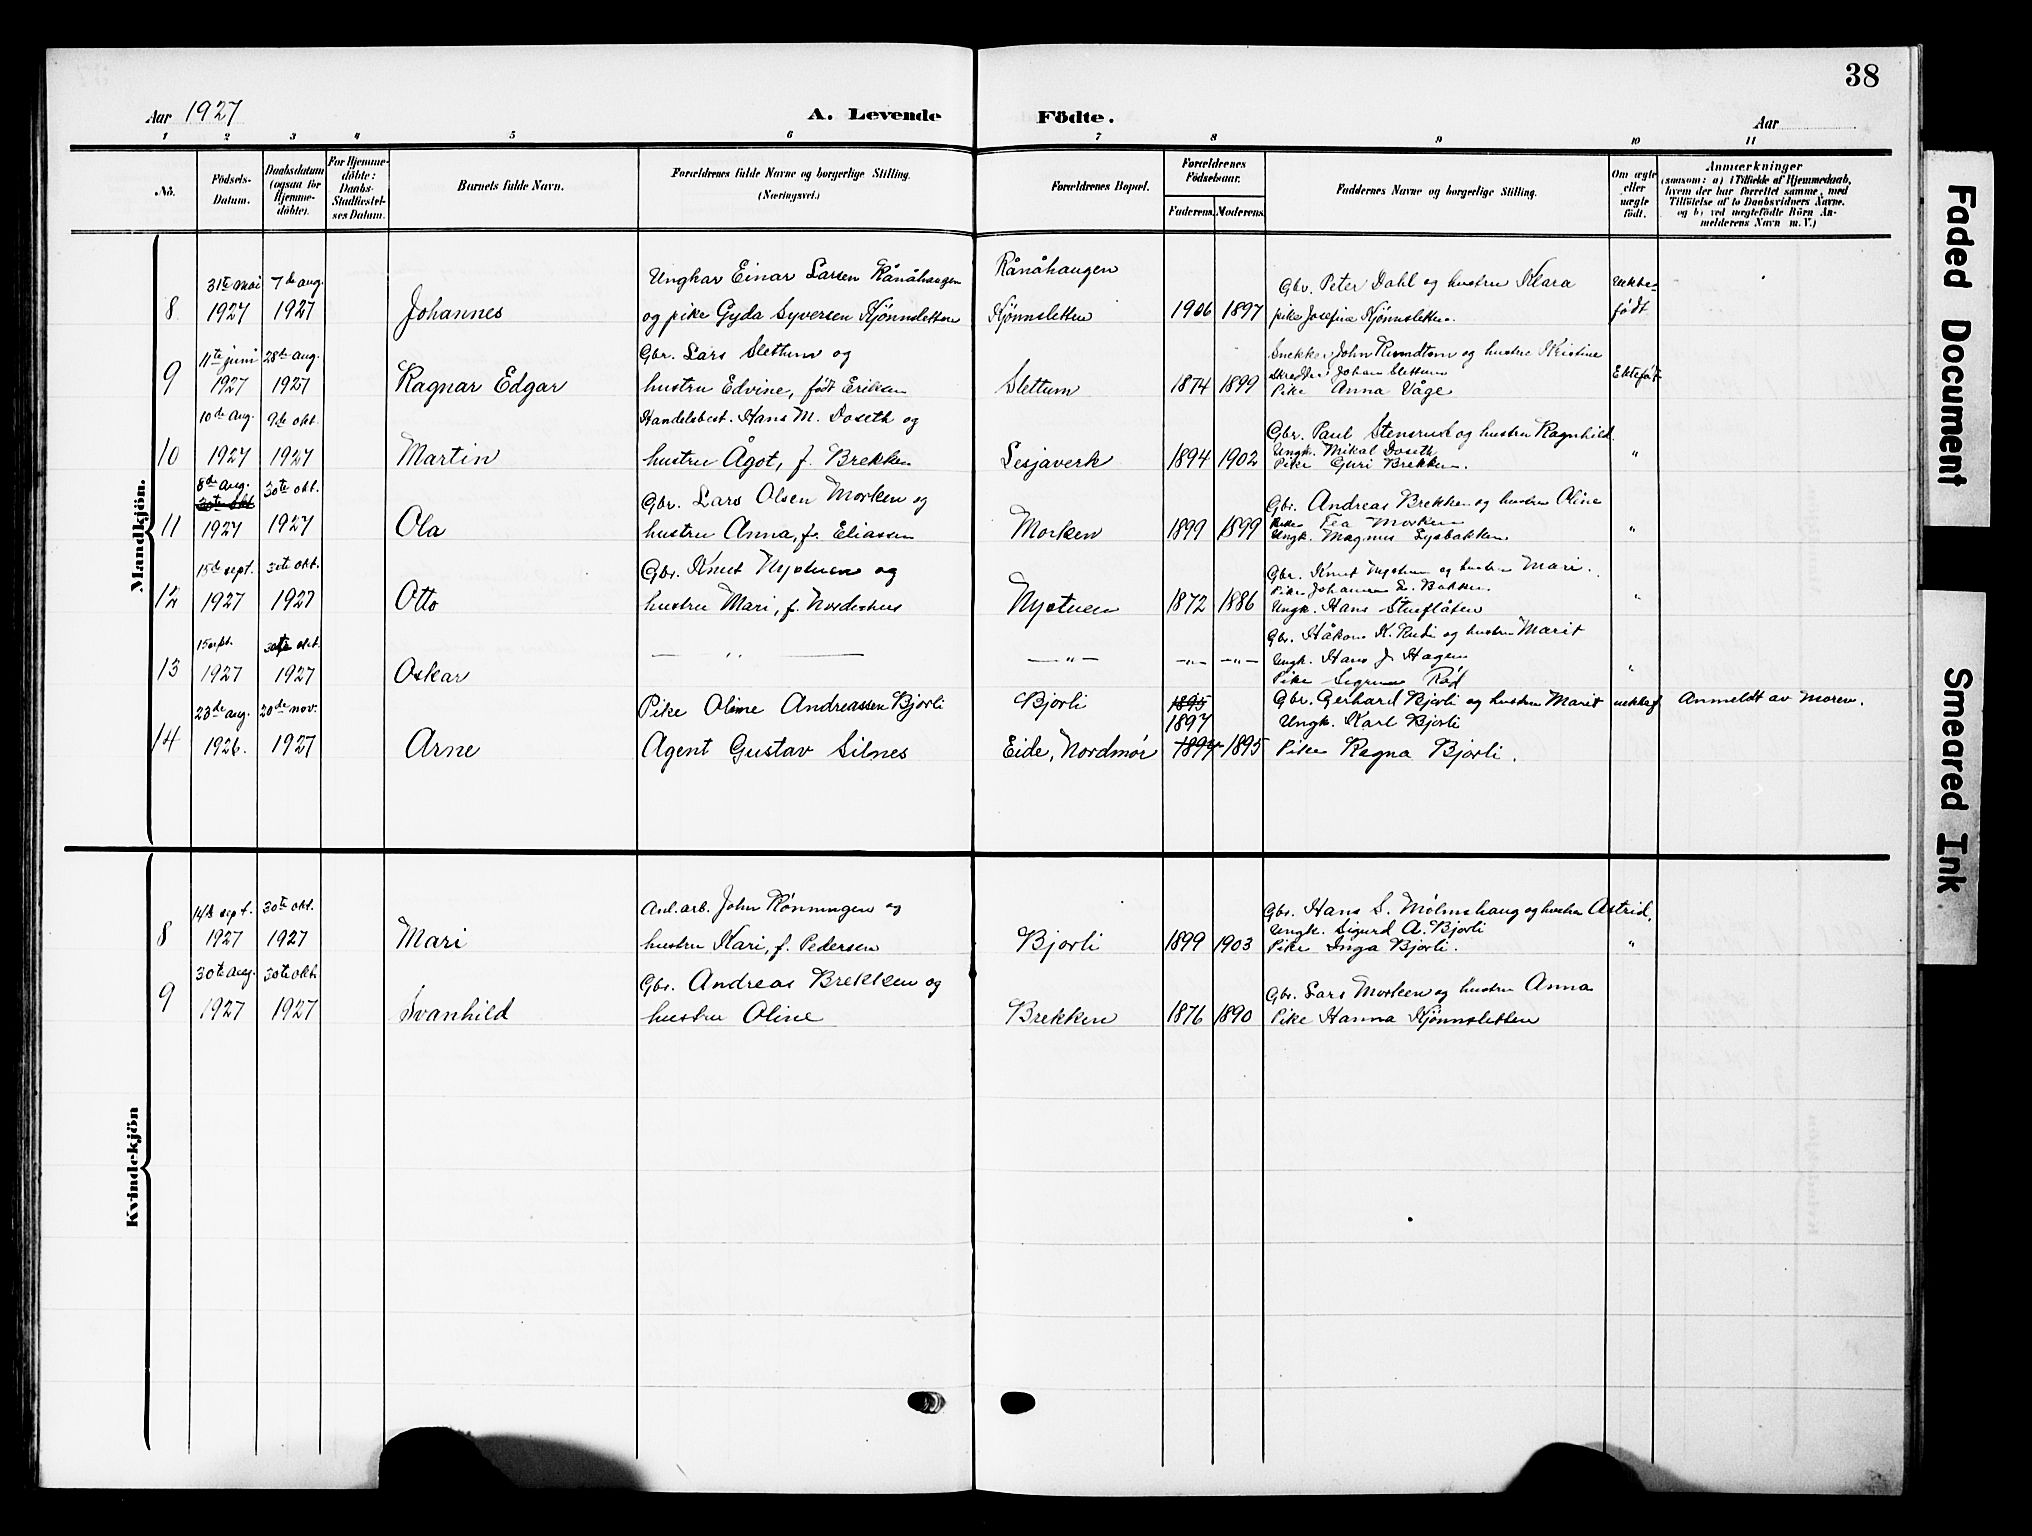 38
Aar 1927
A. Levende Födte.
Aar
1 2 3 4 5 6 7 8 9 10 11
No.
Födsels-Datum.
Daabsdatum (ogsaa for Hjemmedöbte).
For Hjemmedöbte: Daabs-Stadfæstelses Datum.
Barnets fulde Navn.
Forældrenes fulde Navne og borgerlige Stilling. (Næringsvei.)
Forældrenes Bopæl.
Forældrenes Födselsaar.
Faderens. Moderens.
Faddernes Navne og borgerlige Stilling.
Om ægte eller uægte födt.
Anmærkninger
(saasom: a) i Tilfælde af Hjemmedaab, hvem der har forrettet samme, med Tilföielse af to Daabsvidners Navne. og b) ved uægtefödte Börn Anmelderens Navn m. V.)
Mandkjön.
31te mai 7de aug. Ungkar Einar Larsen Rånåhaugen Rånåhaugen Gbr. Peter Dahl og hustru Klara
8 1927 1927 Johannes og pike Gyda Syversen Kjönnsletten Kjönnsletten 1906 1897 pike Josefine Kjönnsletten. født
11te juni 28de aug. Gbr. Lars Slettum og Snekker John Rundtom og hustru Kristine
9 1927 1927 Ragnar Edgar hustru Edvine, født Eriksen Slettum 1874 1899 Skredder Johan Slettum Ektefødt
Pike Anna Våge
10de aug. 9de okt. Handelsbest. Hans M. Doseth og Gbr. Paul Stensrud og hustru Ragnhild
10 1927 1927 Martin hustru Ågot, f. Brekken Lesjaverk 1894 1902 Ungk. Mikal Doseth "
Pike Guri Brekken.
8de aug. 30te okt. Gbr. Lars Olsen Morken og Gbr. Andreas Brekken og hustru Oline
30te okt
11 1927 1927 Ola hustru Anna, f. Eliassen Morken 1899 1899 Pike Tea Morken "
Ungk. Magnus Lysbakken.
15de sept. 30te okt. Gbr. Knut Nystuen og Gbr. Knut Nystuen og hustru Mari.
12 1927 1927 Otto hustru Mari, f. Nordishus Nystuen 1872 1886 Pike Johanne L. Bakken. "
Ungk. Hans Stueflåten
15 sept. 30te okt. Gbr. Håkon K. Rudi og hustru Marit
13 1927 1927 Oskar — " — — " — — " — — " — Ungk. Hans J. Hagen "
Pike Sigrun Rød
23de aug. 20de nov. Pike Oline Andreassen Bjorli Bjorli 1895 Gbr. Gerhard Bjorli og hustru Marit Anmeldt av moren.
1897 Ungk. Karl Bjorli
14 1926. 1927 Arne Agent Gustav Silnes Eide, Nordmør 1897 1895 Pike Ragna Bjorli.
Kvindekjön
14de sept. 30te okt. Anl. arb. John Rønningen og Gbr. Hans S. Mølmshaug og hustru Astrid.
8 1927 1927 Mari hustru Kari, f. Pedersen Bjorli 1899 1903 Ungk. Sigurd A. Bjorli "
Pike Inga Bjorli.
30te aug. 30te okt. Gbr. Andreas Brekken og Gbr. Lars Morken og hustru Anna
9 1927 1927 Svanhild hustru Oline Brekken 1876 1890 Pike Hanna Kjönnsletten
Faded Document
Smeared Ink